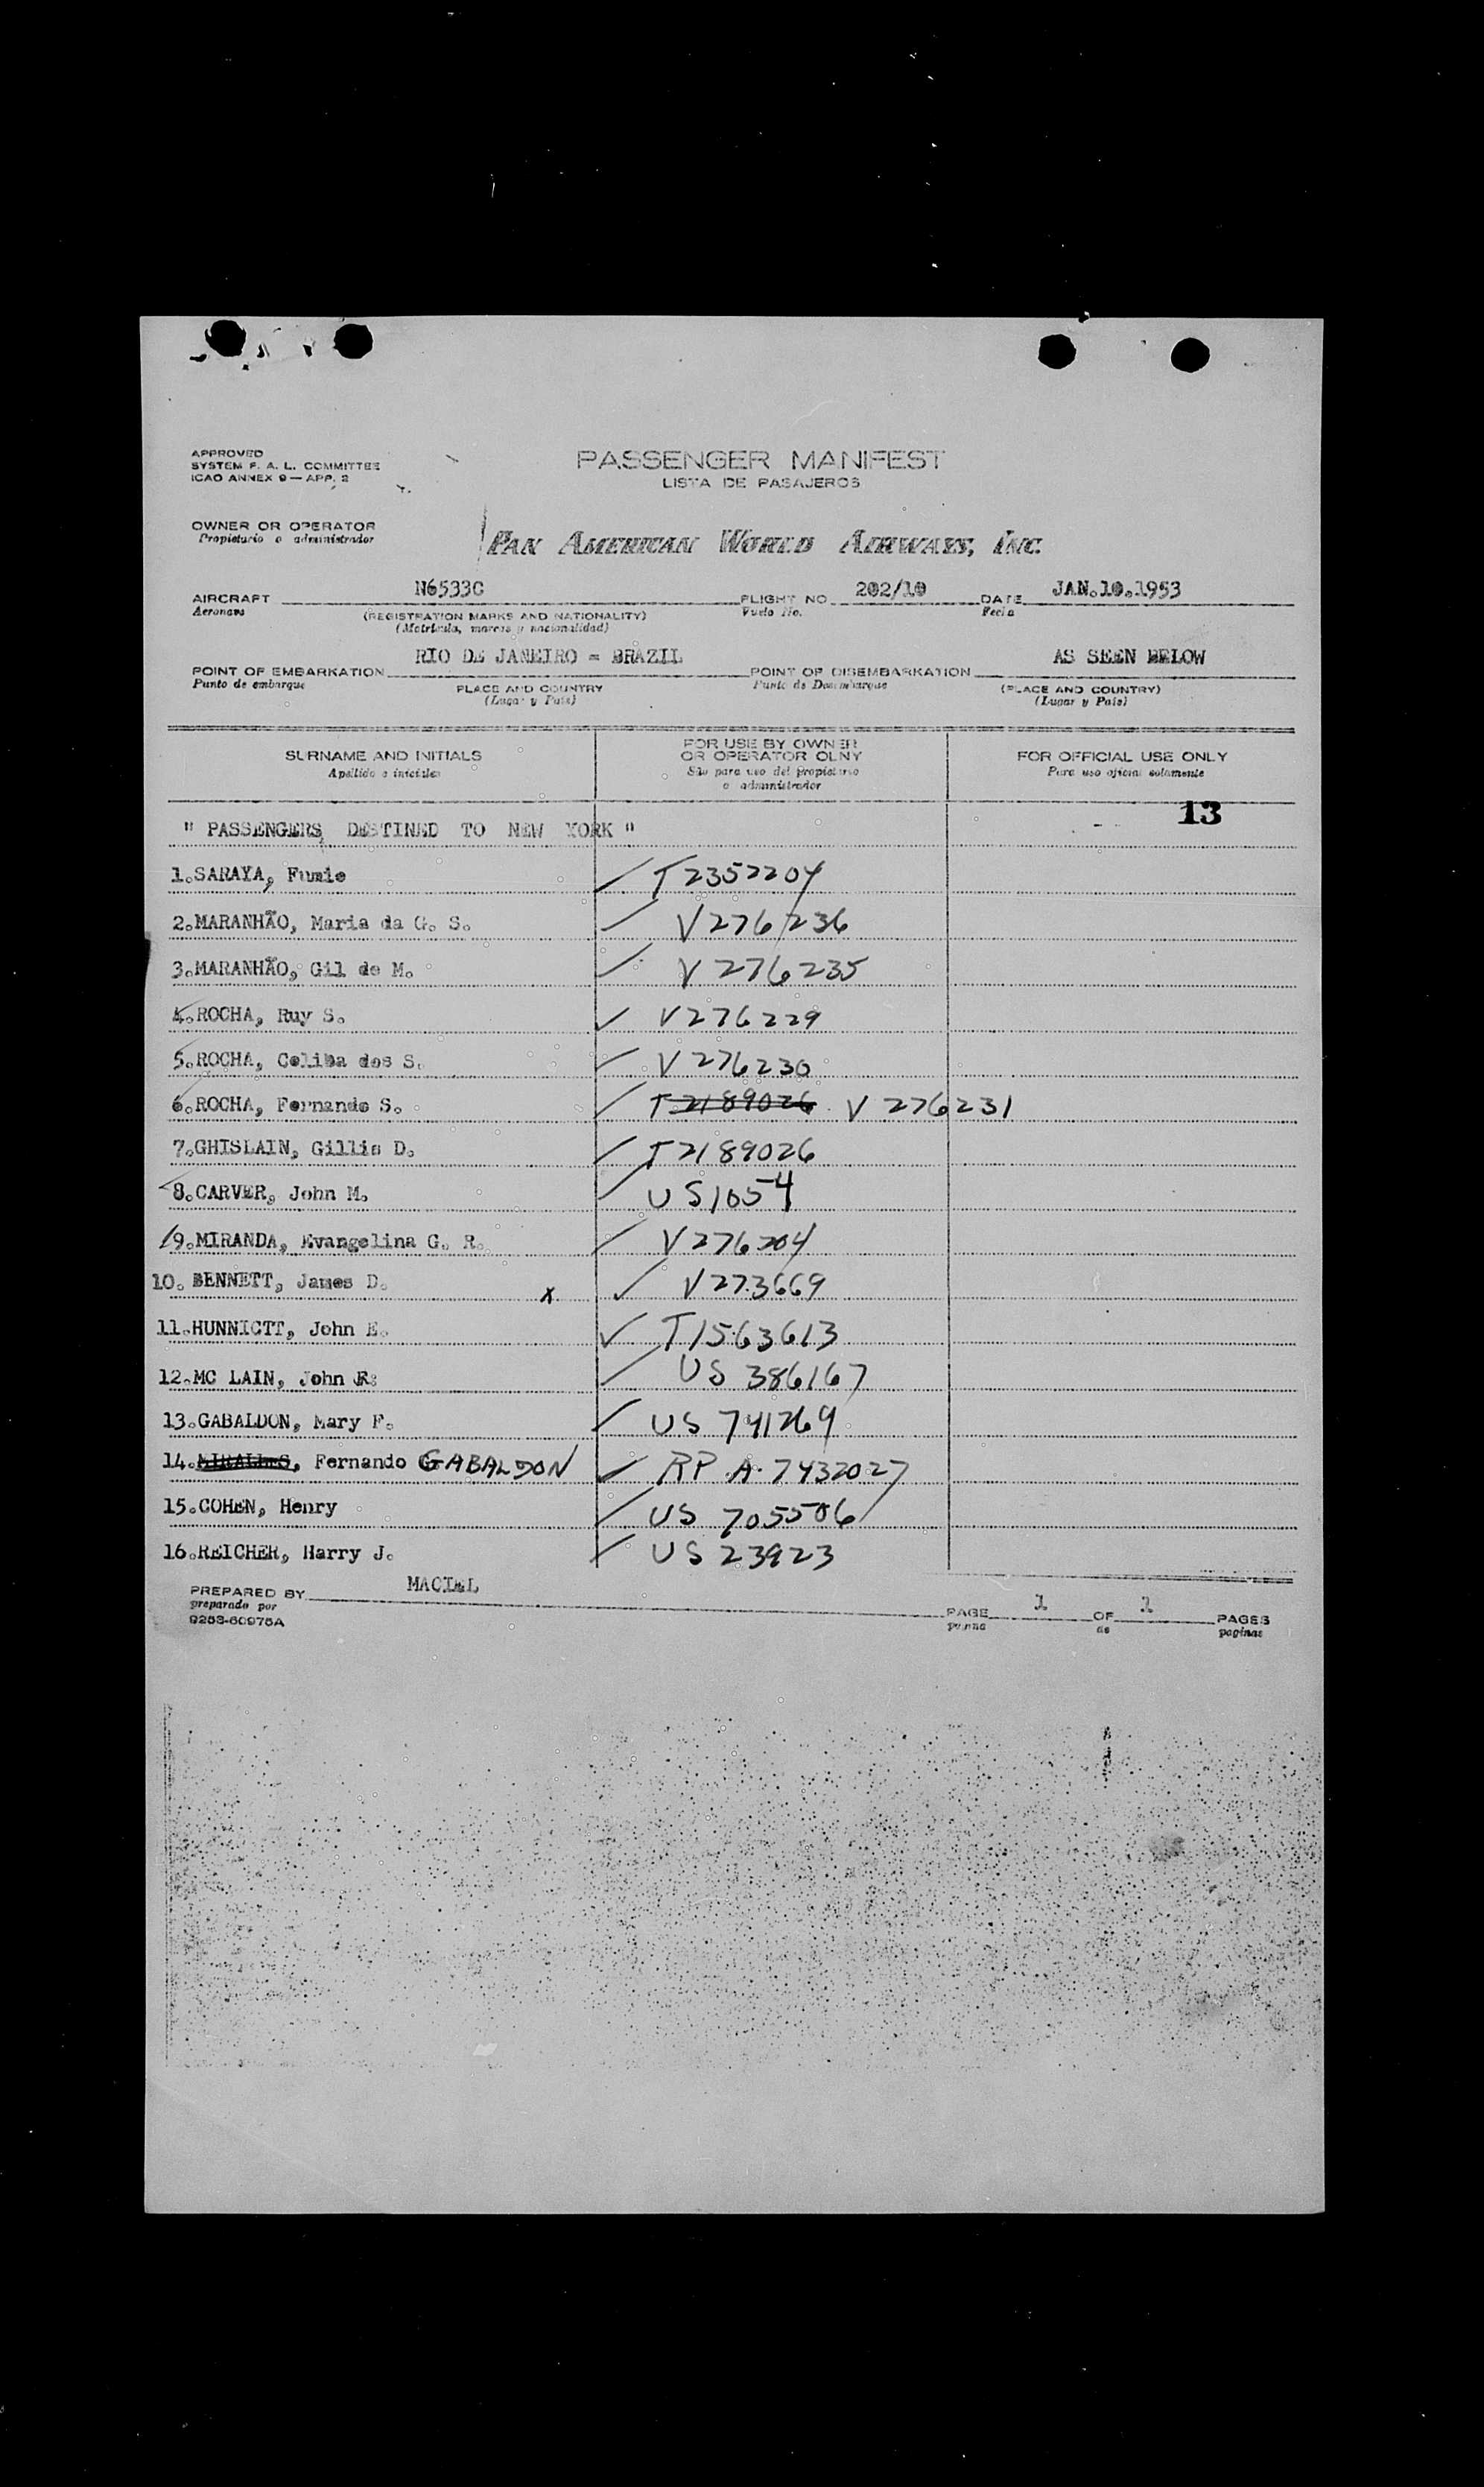 APPROVED
SYSTEM F. A. L. COMMITTEE
ICAO ANNEX 9 — APP. 2
PASSENGER MANIFEST
LISTA DE PASAJEROS
OWNER OR OPERATOR
Propietario o administrador
PAN AMERICAN WORLD AIRWAYS, INC.
AIRCRAFT N6533C FLIGHT NO. 202/10 DATE JAN.10.1953
Aeronave (REGISTRATION MARKS AND NATIONALITY) Vuelo No. Fecha
(Matricula, marcas y nacionalidad)
POINT OF EMBARKATION RIO DE JANEIRO = BRAZIL POINT OF DISEMBARKATION AS SEEN BELOW
Punto de embarque PLACE AND COUNTRY Punto de Desembarque (PLACE AND COUNTRY)
(Lugar y Pais) (Lugar y Pais)
SURNAME AND INITIALS FOR USE BY OWNER OR OPERATOR OLNY FOR OFFICIAL USE ONLY
Apellido e iniciales Sólo para uso del propietario o administrador Para uso oficial solamente
13
" PASSENGERS DESTINED TO NEW YORK "
1.SARAYA, Fumie ✓ T2352204
2.MARANHÃO, Maria da G. S. ✓ V276236
3.MARANHÃO, Gil de M. ✓ V276235
4.ROCHA, Ruy S. ✓ V276229
5.ROCHA, Celiba dos S. ✓ V276230
6.ROCHA, Fernando S. ✓ T2189026 V276231
7.GHISLAIN, Gillis D. ✓ T2189026
8.CARVER, John M. ✓ US1054
9.MIRANDA, Evangelina G. R. ✓ V276204
10. BENNETT, James D. x ✓ V273669
11.HUNNICTT, John E. ✓ T1563613
12.MC LAIN, John R. ✓ US 386167
13.GABALDON, Mary F. ✓ US 741269
14. Fernando GABALDON ✓ RP A-7432027
15.COHEN, Henry ✓ US 705506
16.REICHER, Harry J. ✓ US 23923
PREPARED BY MACIEL
preparado por PAGE 1 OF 1 PAGES
9253-60975A pagina de paginas